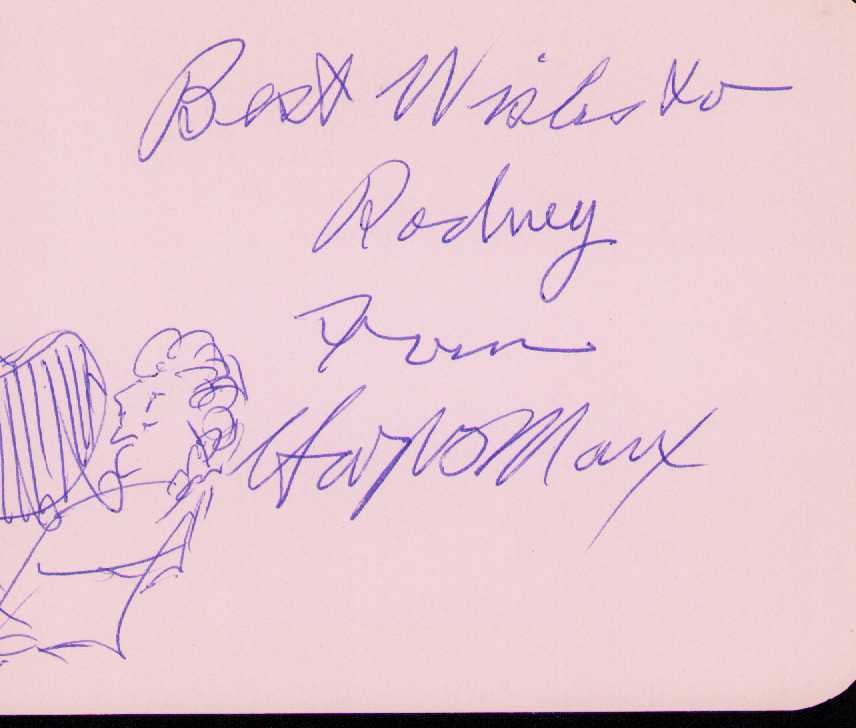 Best Wishes to
Rodney
From
Harpo Marx